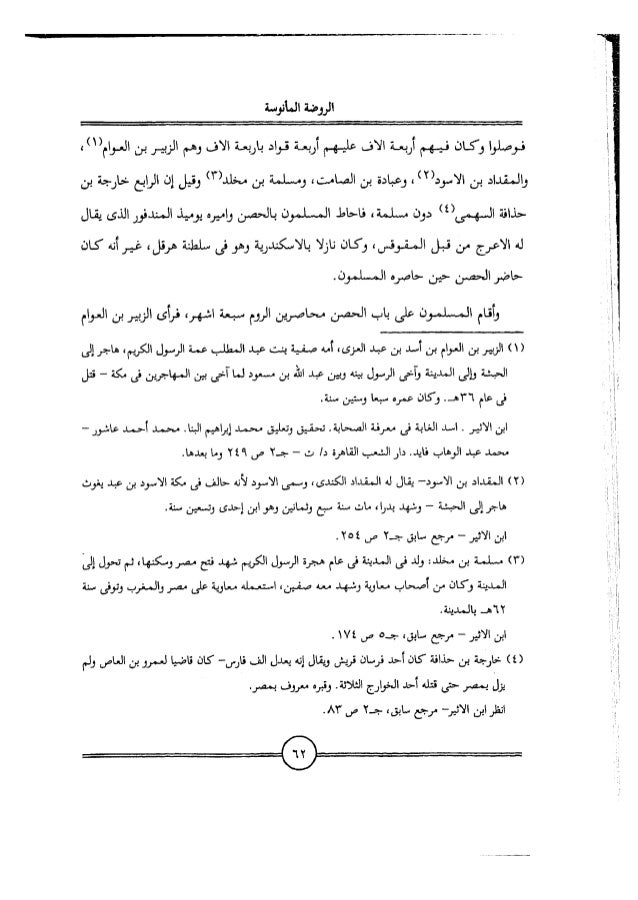 الروضة المأنوسة
فوصلوا وكان فيهم أربعة الاف عليهم أربعة قواد باربعة الاف وهم الزبير بن العوام(١)،
والمقداد بن الاسود(٢)، وعبادة بن الصامت، ومسلمة بن مخلد(٣) وقيل إن الرابع خارجة بن
حذافة السهمى(٤) دون مسلمة، فاحاط المسلمون بالحصن واميره يوميذ المندفور الذى يقال
له الاعرج من قبل المقوقس، وكان نازلا بالاسكندرية وهو فى سلطنة هرقل، غير أنه كان
حاضر الحصن حين حاصره المسلمون.
وأقام المسلمون على باب الحصن محاصرين الروم سبعة اشهر، فرأى الزبير بن العوام
(١) الزبير بن العوام بن أسد بن عبد العزى، أمه صفية بنت عبد المطلب عمة الرسول الكريم، هاجر إلى
الحبشة وإلى المدينة وآخى الرسول بينه وبين عبد الله بن مسعود لما آخى بين المهاجرين فى مكة – قتل
فى عام ٣٦هـ. وكان عمره سبعا وستين سنة.
ابن الاثير . اسد الغابة فى معرفة الصحابة. تحقيق وتعليق محمد إبراهيم البنا. محمد أحمد عاشور –
محمد عبد الوهاب فايد. دار الشعب القاهرة د/ ت – جـ٢ ص ٢٤٩ وما بعدها.
(٢) المقداد بن الاسود– يقال له المقداد الكندى، وسمى الاسود لأنه حالف فى مكة الاسود بن عبد يغوث
هاجر إلى الحبشة – وشهد بدرا، مات سنة سبع وثمانين وهو ابن إحدى وتسعين سنة.
ابن الاثير – مرجع سابق جـ٢ ص ٢٥٤.
(٣) مسلمة بن مخلد: ولد فى المدينة فى عام هجرة الرسول الكريم شهد فتح مصر وسكنها، ثم تحول إلى
المدينة وكان من أصحاب معاوية وشهد معه صفين، استعمله معاوية على مصر والمغرب وتوفى سنة
٦٢هـ بالمدينة.
ابن الاثير – مرجع سابق، جـ٥ ص ١٧٤.
(٤) خارجة بن حذافة كان أحد فرسان قريش ويقال إنه يعدل الف فارس– كان قاضيا لعمرو بن العاص ولم
يزل بمصر حتى قتله أحد الخوارج الثلاثة. وقبره معروف بمصر.
انظر ابن الاثير– مرجع سابق، جـ٢ ص ٨٣.
٦٢